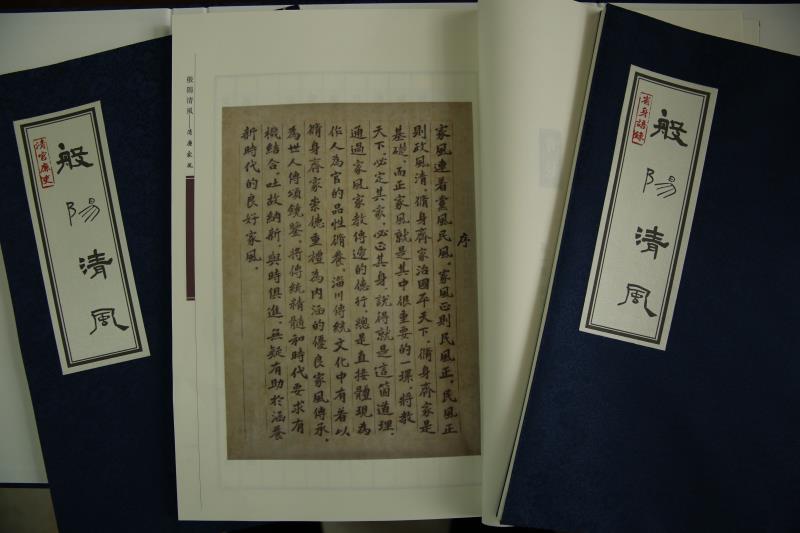 清官廉史
般陽清風
般陽清風——清廉家風
序
家風連着黨風民風，家風正則民風正，民風正
則政風清，脩身齊家治國平天下，脩身齊家是
基礎，而正家風就是其中很重要的一環，將教
天下，必定其家，必正其身説得就是這箇道理，
通過家風家教傳遞的德行，總是直接體現為
作人為官的品性脩養，淄川傳統文化中有着以
脩身齊家崇德重禮為内涵的優良家風傳承，
為世人傳頌鏡鑒，將傳統精髓和時代要求有
機結合，吐故納新，與時俱進，無疑有助於涵養
新時代的良好家風。
省身語錄
般陽清風